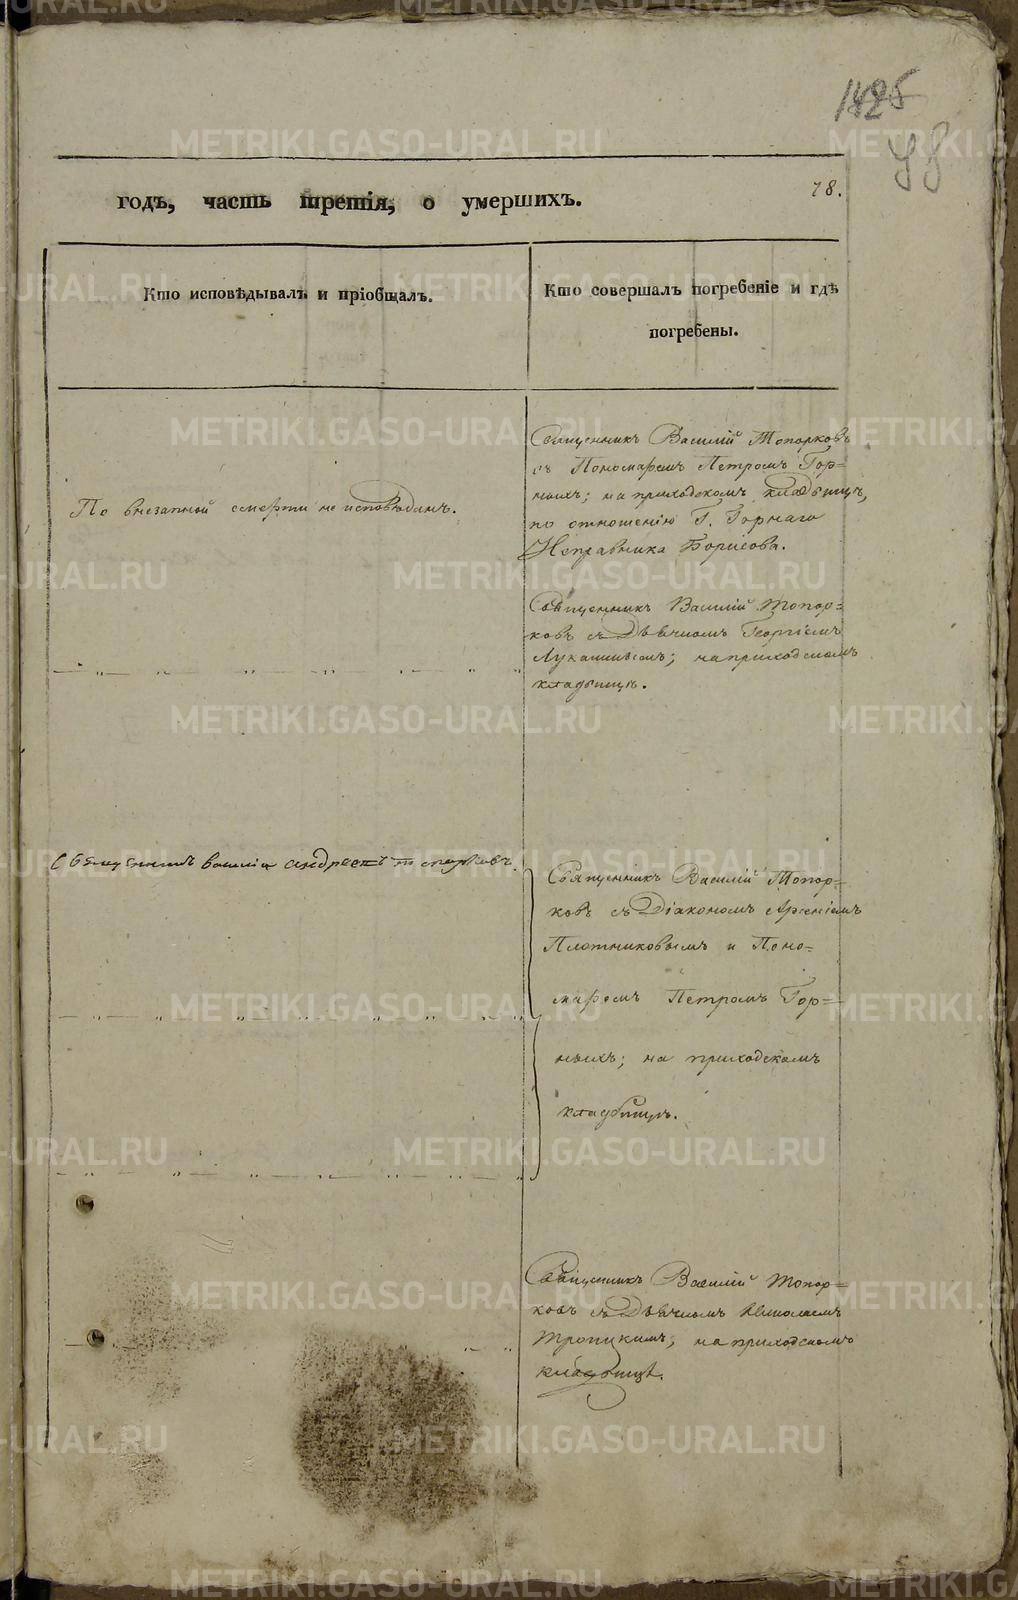 1425
78
годъ, часть третія, о умершихъ.
78.
Кто исповѣдывалъ и пріобщалъ.
Кто совершалъ погребеніе и гдѣ
погребены.
Священникъ Василій Топорковъ
съ Пономаремъ Петромъ Гор=
ныхъ; на приходскомъ кладбищѣ,
по отношенію Г. Горнаго
Исправника Борисова.
По внезапной смерти не исповѣданъ.
Священникъ Василій Топор=
ковъ съ Дьячкомъ Георгіемъ
; на приходскомъ
кладбищѣ.
Священникъ Василій Андреевъ Топорковъ.
Священникъ Василій Топор=
ковъ съ Діакономъ Арсеніемъ
Плотниковымъ и Поно=
маремъ Петромъ Гор=
ныхъ; на приходскомъ
кладбищѣ.
Священникъ Василій Топор=
ковъ съ Дьячкомъ Николаемъ
Троицкимъ; на приходскомъ
кладбищѣ.
METRIKI.GASO-URAL.RU